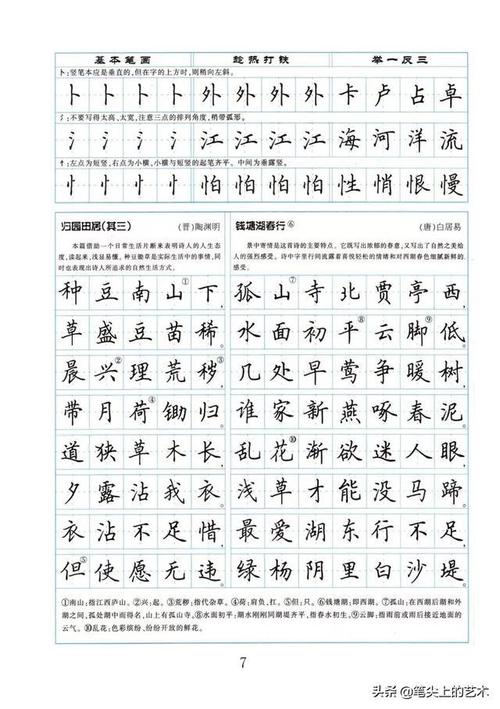 基本笔画 趁热打铁 举一反三
卜:竖笔本应是垂直的,但在字的上方时,则稍向左斜。
卜卜卜卜外外外外卡卢占卓
氵:不要写得太高、太宽,注意三点的排列角度,稍带弧形。
氵氵氵氵江江江江海河洋流
忄:左点为短竖,右点为小横,小横与短竖的起笔齐平。中间为垂露竖。
忄忄忄忄怕怕怕怕性悄恨慢
归园田居(其三) (晋)陶渊明
本篇借助一个日常生活片断来表明诗人的人生态
度,读起来,浅显易懂,种豆锄草是实际生活中的事情,同
时也表现出诗人所追求的自然生活方式。
种豆南山①下
草盛豆苗稀,
晨兴②理荒秽③
带月荷④锄归。
道狭草木长,
夕露沾我衣。
衣沾不足惜,
但⑤使愿无违。
钱塘湖春行⑥ (唐)白居易
景中寄情是这首诗的主要特点。它既写出浓郁的春意,又写出了自然之美给
人的强烈感受。诗中字里行间流露着喜悦轻松的情绪和对西湖春色细腻新鲜的
感受。
孤山⑦寺北贾亭西,
水面初平⑧云脚⑨低。
几处早莺争暖树,
谁家新燕啄春泥。
乱花⑩渐欲迷人眼,
浅草才能没马蹄。
最爱湖东行不足,
绿杨阴里白沙堤。
①南山:指江西庐山。②兴:起。③荒秽:指代杂草。④荷:肩负,扛。⑤但:只。⑥钱塘湖:即西湖。⑦孤山:在西湖后湖和外
湖之间,孤处湖中而得名,山上有孤山寺。⑧水面初平:湖水刚刚同湖堤齐平,指春水初生。⑨云脚:指雨前或雨后接近地面的
云气。⑩乱花:色彩缤纷,纷纷开放的鲜花。
7
头条@笔尖上的艺术